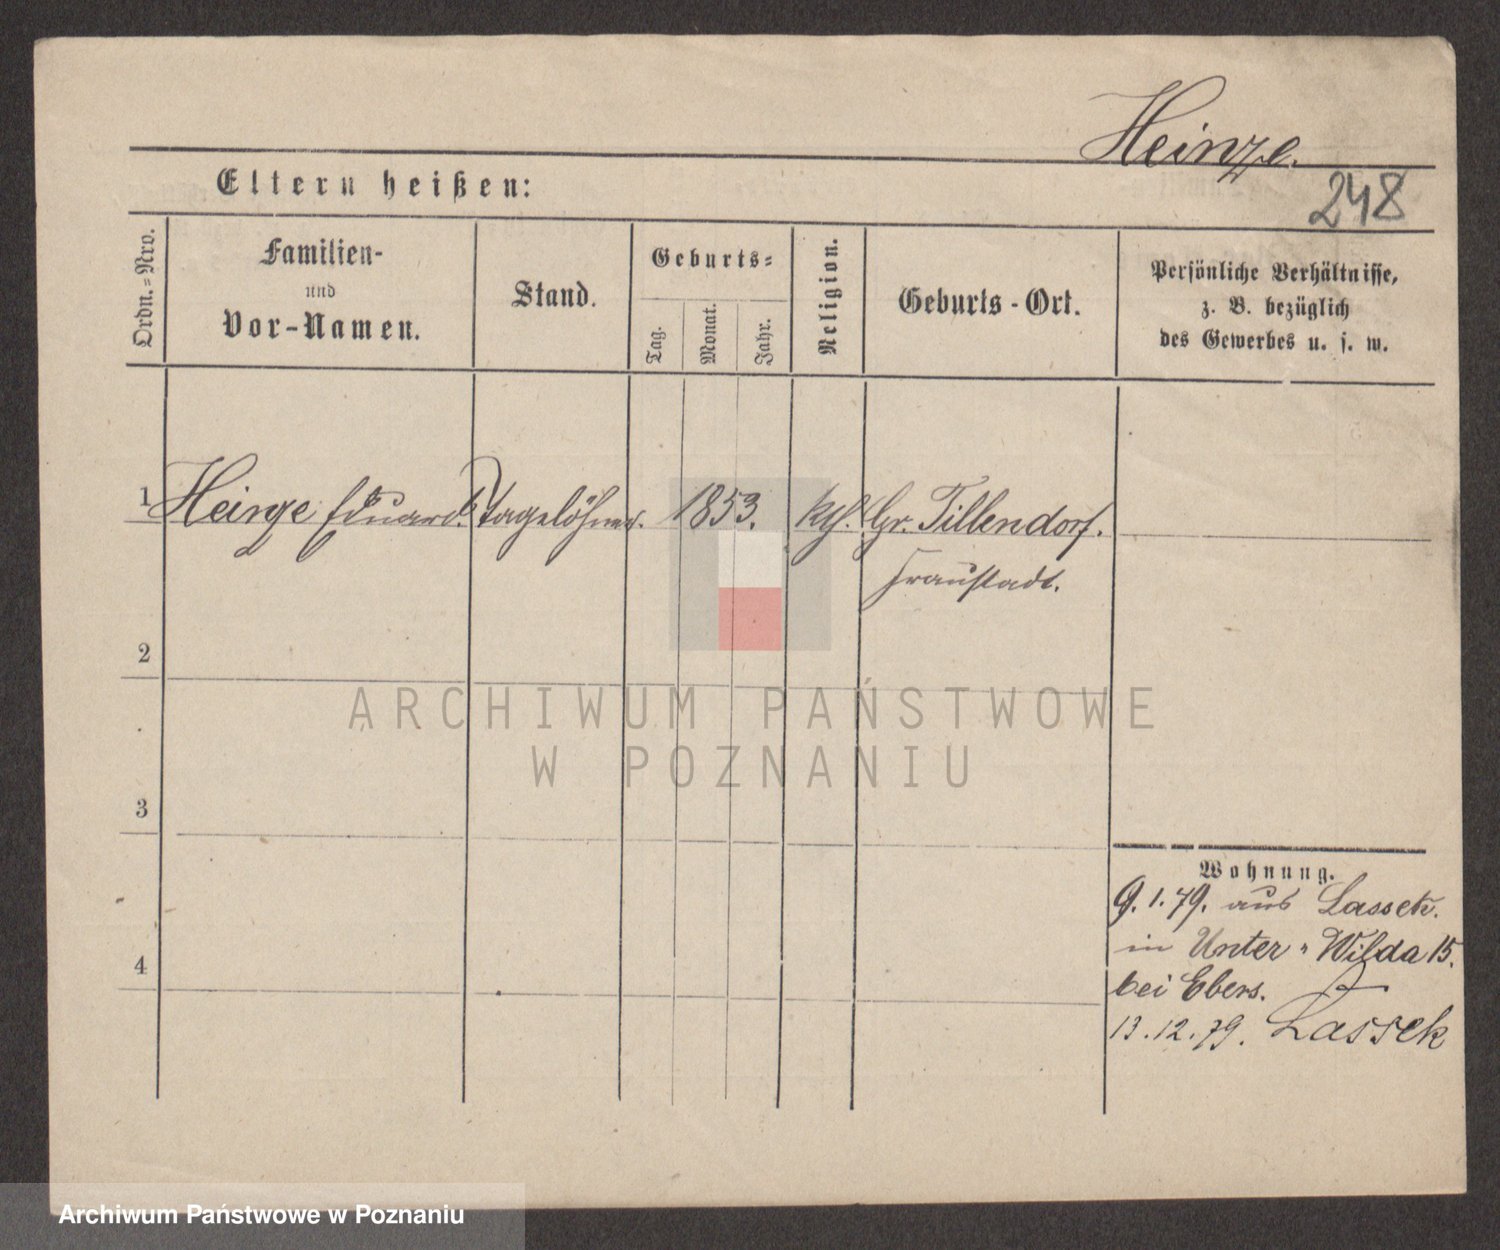 Heinze.
Eltern heißen:
248
Ordn.=Nro.
Familien-
und
Vor-Namen.
Stand.
Geburts=
Tag.
Monat.
Jahr.
Religion.
Geburts-Ort.
Persönliche Verhältnisse,
z. B. bezüglich
des Gewerbes u. s. w.
1 Heinze Eduard. Tagelöhner. 1853. kth. Gr. Tillendorf.
Fraustadt.
2
3
4
Wohnung.
9.1.79. aus Lassek.
in Unter-Wilda 15.
bei Ebers.
13.12.79. Lassek
ARCHIWUM PAŃSTWOWE
W POZNANIU
Archiwum Państwowe w Poznaniu